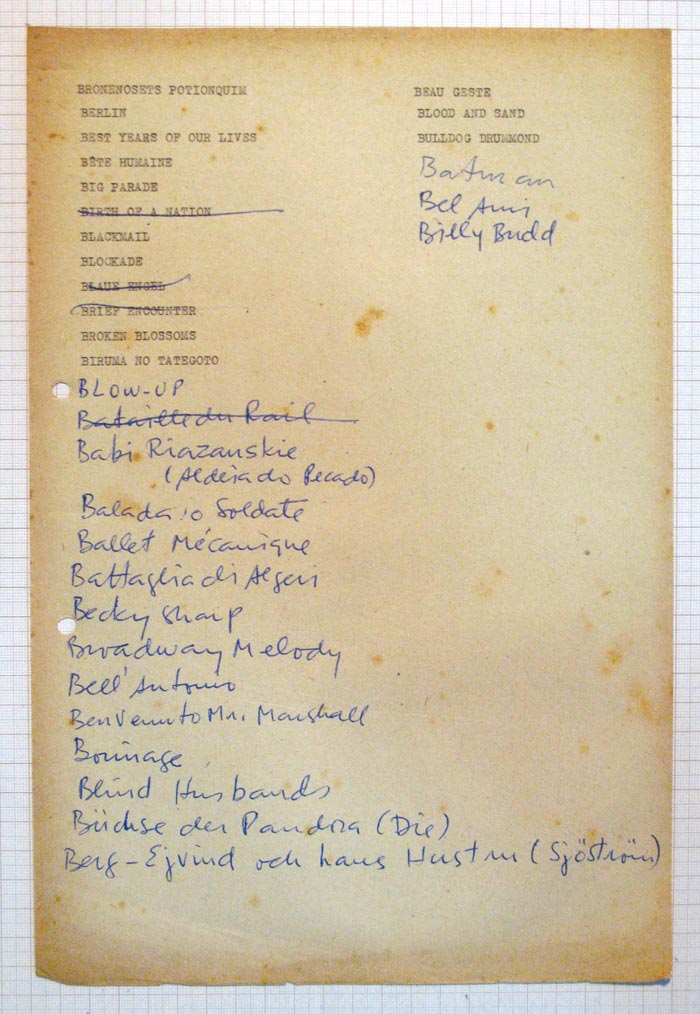 BRONENOSETS POTIONQUIM
BERLIN
BEST YEARS OF OUR LIVES
BÊTE HUMAINE
BIG PARADE
BIRTH OF A NATION
BLACKMAIL
BLOCKADE
BLAUE ENGEL
BRIEF ENCOUNTER
BROKEN BLOSSOMS
BIRUMA NO TATEGOTO
BLOW-UP
Bataille du Rail
Babi Riazanskie
(Aldeia do Pecado)
Balada o Soldate
Ballet Mécanique
Battaglia di Algeri
Becky Sharp
Broadway Melody
Bell'Antonio
Benvenuto Mr. Marshall
Borinage
Blind Husbands
Büchse der Pandora (Die)
Berg-Ejvind och hans Hustru (Sjöström)
BEAU GESTE
BLOOD AND SAND
BULLDOG DRUMMOND
Batman
Bel Ami
Billy Budd